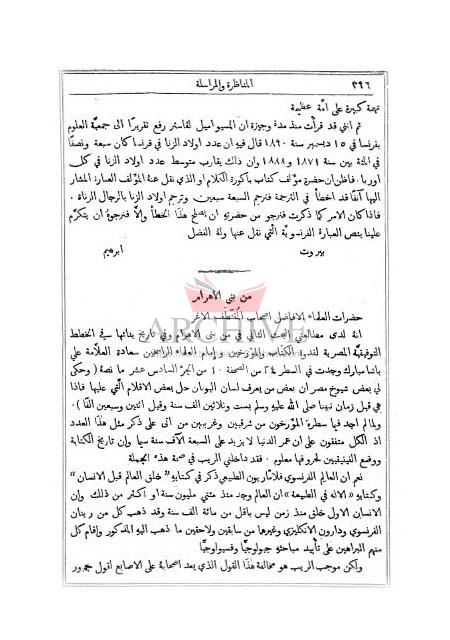 المناظرة والمراسلة ٣٩٦
تهمة كبيرة على امّة عظيمة
ثم انني قد قرأت منذ مدة وجيزة ان المسيو اميل لڤاستر رفع تقريرًا الى جمعيّة العلوم
بفرنسا في ١٥ دسمبر سنة ١٨٩٠ قال فيه ان عدد اولاد الزنا في فرنسا كان سبعة ونصفًا
في المئة بين سنة ١٨٧١ و١٨٨٨ وان ذلك يقارب متوسط عدد اولاد الزنا في كل
اوربا. فاظن ان حضرة مؤلف كتاب باكورة الكلام او الذي نقل عنهُ المؤلف العبارة المشار
اليها آنفًا قد اخطأ في الترجمة فترجم السبعة سبعين وترجم اولاد الزنا بالرجال الزناة.
فاذا كان الامر كما ذكرت فنرجو من حضرتهِ ان يصلح هذا الخطأ والاَّ فنرجوهُ ان يتكرّم
علينا بنص العبارة الفرنسويّة التي نقل عنها ولهُ الفضل
بيروت ابرهيم
من بنى الاهرام
حضرات العلماء الافاضل اصحاب المقتطف الاغر
ARCHIVE
انهُ لدى مطالعتي البحث التالي في من بنى الاهرام وفي تاريخ بنائها في الخطط
التوفيقيّة المصرية لقدوة الكتّاب والمؤرخين وامام العلماء الراسخين سعادة العلاّمة علي
باشا مبارك وجدت في السطر ٢٤ من الصفحة ١٠ من الجزء السادس عشر ما نصهُ (وحكى
لي بعض شيوخ مصر ان بعض من يعرف لسان اليونان حل بعض الاقلام التي عليها فاذا
هي قبل زمان نبينا صلى الله عليهِ وسلم بست وثلاثين الف سنة وقيل اثنتين وسبعين الفًا).
ولما لم اجد فيما سطرهُ المؤرخون من شرقيين وغربيين من اتى على ذكر مثل هذا العدد
اذ الكل متفقون على ان عمر الدنيا لا يزيد على السبعة آلاف سنة سيما وان تاريخ الكتابة
ووضع الفينيقيين لحروفها معلوم. فقد داخلني الريب في صحة هذه الجملة
نعم ان العالم الفرنسوي فلاماريون الطبيعي ذكر في كتابيهِ "خلق العالم قبل الانسان"
وكتابهِ "الاله في الطبيعة" ان العالم وجد منذ مئتي مليون سنة او اكثر من ذلك وان
الانسان الاول خلق منذ زمن ليس باقل من مائة الف سنة وقد ذهب كل من رينان
الفرنسوي ودارون الانكليزي وغيرها من سابقين ولاحقين ما ذهب اليهِ المذكور واقام كل
منهم البراهين على تأييد مباحثهِ جيولوجيًّا وفسيولوجيًّا
ولكن موجب الريب هو مخالفة هذا القول الذي يعد اصحابهُ على الاصابع لقول جمهور